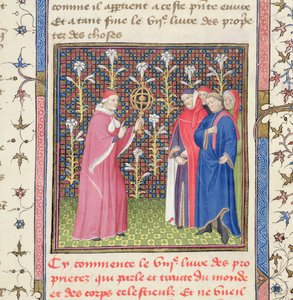 comme il appient a ceste pnte euure
Et a tant fine le vijᵉ liure des prope
tez des choses
Cy commence le viijᵉ liure des pro
prietez qui parle et traicte du monde
et des corps celestieulx Et ne vueil